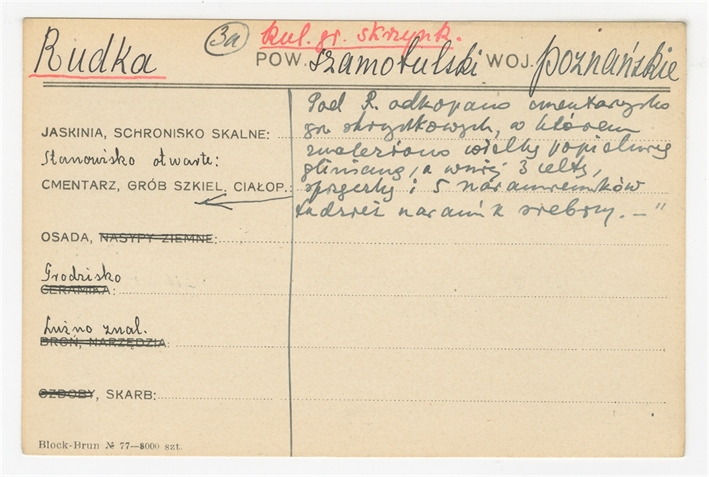 Rudka
3a
kul. gr. skrzynk.
POW. szamotulski WOJ. poznańskie
JASKINIA, SCHRONISKO SKALNE:
Stanowisko otwarte:
CMENTARZ, GRÓB SZKIEL. CIAŁOP.:
OSADA, NASYPY ZIEMNE:
Grodzisko
CERAMIKA:
Luźno znal.
BROŃ, NARZĘDZIA:
OZDOBY, SKARB:
Pod R. odkopano cmentarzysko
gr. skrzynkowych, w którem
znaleziono wielką popielnicę
glinianą, a w niej 3 celty,
i 5 naramienników
tudzież naramk srebrny. — "
Block-Brun № 77—8000 szt.